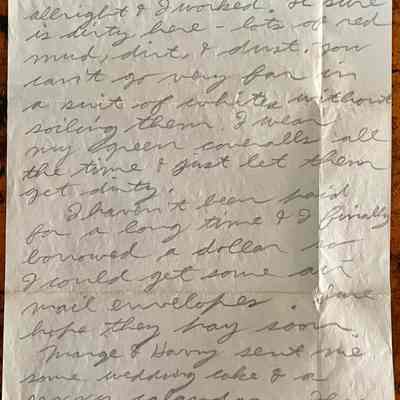 allright & I worked. It sure
is dirty here - lots of red
mud, dirt, & dust. You
can't go very far in
a suit of whites without
soiling them. I wear
my green coveralls all
the time & just let them
get dirty.
I haven't been paid
for a long time & I finally
borrowed a dollar so
I could get some air
mail envelopes. Sure
hope they pay soon.
Marge & Harry sent me
some wedding cake & a